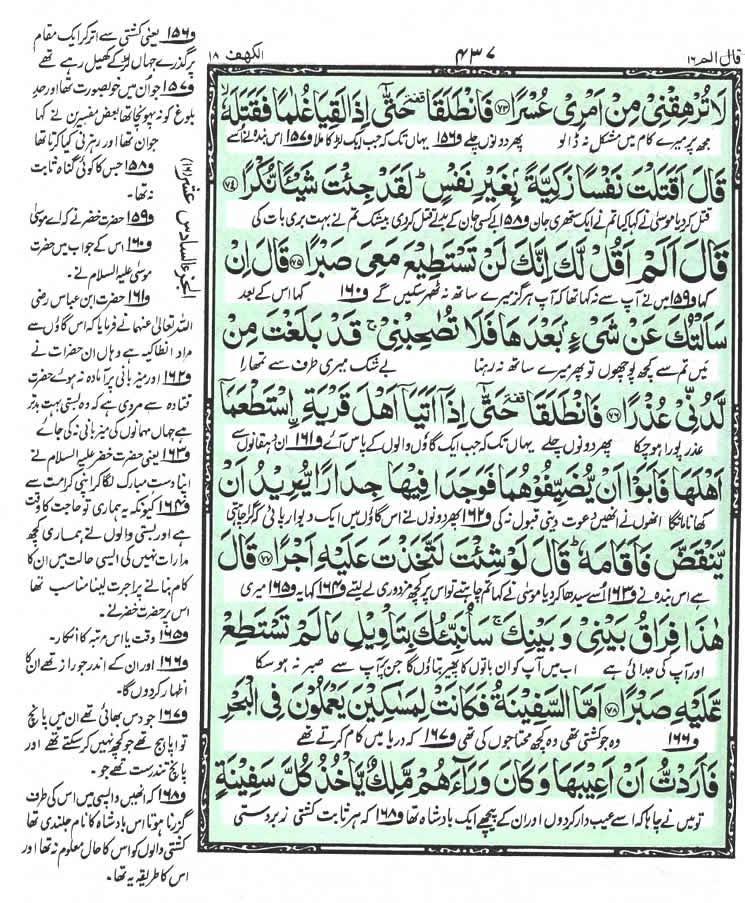 قال الم ١٦
٤٣٧
الكهف ١٨
لَا تُرْهِقْنِیْ مِنْ اَمْرِیْ عُسْرًا ﴿۷۳﴾ فَانْطَلَقَا ۥ حَتّٰۤی اِذَا لَقِیَا غُلٰمًا فَقَتَلَهٗ ۙ
مجھ پر میرے کام میں مشکل نہ ڈالو پھر دونوں چلے و۱۵۶ یہاں تک کہ جب ایک لڑکا ملا و۱۵۷ اس بندہ نے اسے
قَالَ اَقَتَلْتَ نَفْسًا زَكِیَّةًۢ بِغَیْرِ نَفْسٍ ؕ لَقَدْ جِئْتَ شَیْـًٔا نُّكْرًا ﴿۷۴﴾
قتل کردیا موسیٰ نے کہا کیا تم نے ایک ستھری جان و۱۵۸ بے کسی جان کے بدلے قتل کردی بیشک تم نے بہت بری بات کی
قَالَ اَلَمْ اَقُلْ لَّكَ اِنَّكَ لَنْ تَسْتَطِیْعَ مَعِیَ صَبْرًا ﴿۷۵﴾ قَالَ اِنْ
کہا و۱۵۹ میں نے آپ سے نہ کہا تھا کہ آپ ہرگز میرے ساتھ نہ ٹھہر سکیں گے و۱۶۰ کہا اس کے بعد
سَاَلْتُكَ عَنْ شَیْءٍۭ بَعْدَهَا فَلَا تُصٰحِبْنِیْ ۚ قَدْ بَلَغْتَ مِنْ
میں تم سے کچھ پوچھوں تو پھر میرے ساتھ نہ رہنا بے شک میری طرف سے تمہارا
لَّدُنِّیْ عُذْرًا ﴿۷۶﴾ فَانْطَلَقَا ۥ حَتّٰۤی اِذَاۤ اَتَیَاۤ اَهْلَ قَرْیَةِ ِ۟اسْتَطْعَمَاۤ
عذر پورا ہوچکا پھر دونوں چلے یہاں تک کہ جب ایک گاؤں والوں کے پاس آئے و۱۶۱ ان دہقانوں سے
اَهْلَهَا فَاَبَوْا اَنْ یُّضَیِّفُوْهُمَا فَوَجَدَا فِیْهَا جِدَارًا یُّرِیْدُ اَنْ
کھانا مانگا انھوں نے انھیں دعوت دینی قبول نہ کی و۱۶۲ پھر دونوں نے اس گاؤں میں ایک دیوار پائی کہ گرا چاہتی
یَّنْقَضَّ فَاَقَامَهٗ ؕ قَالَ لَوْ شِئْتَ لَتَّخَذْتَ عَلَیْهِ اَجْرًا ﴿۷۷﴾ قَالَ
ہے اس بندہ نے و۱۶۳ اُسے سیدھا کردیا موسیٰ نے کہا تم چاہتے تو اس پر کچھ مزدوری لے لیتے و۱۶۴ کہا یہ و۱۶۵ میری
هٰذَا فِرَاقُ بَیْنِیْ وَ بَیْنِكَ ۚ سَاُنَبِّئُكَ بِتَاْوِیْلِ مَا لَمْ تَسْتَطِعْ
اور آپ کی جدائی ہے اب میں آپ کو ان باتوں کا پھیر بتاؤں گا جن پر آپ سے صبر نہ ہو سکا
عَّلَیْهِ صَبْرًا ﴿۷۸﴾ اَمَّا السَّفِیْنَةُ فَكَانَتْ لِمَسٰكِیْنَ یَعْمَلُوْنَ فِی الْبَحْرِ
و۱۶۶ وہ جو کشتی تھی وہ کچھ محتاجوں کی تھی و۱۶۷ کہ دریا میں کام کرتے تھے
فَاَرَدْتُّ اَنْ اَعِیْبَهَا وَ كَانَ وَرَآءَهُمْ مَّلِكٌ یَّاْخُذُ كُلَّ سَفِیْنَةٍ
تو میں نے چاہا کہ اسے عیب دار کردوں اور ان کے پیچھے ایک بادشاہ تھا و۱۶۸ کہ ہر ثابت کشتی زبردستی
الجزء السادس عشر (۱۶)
و۱۵۶ یعنی کشتی سے اتر کر ایک مقام
پر گذرے جہاں لڑکے کھیل رہے تھے
و۱۵۷ جو ان میں خوبصورت تھا اور حدِ
بلوغ کو نہ پہونچا تھا بعض مفسرین نے کہا
جوان تھا اور رہزنی کیا کرتا تھا
و۱۵۸ جس کا کوئی گناہ ثابت
نہ تھا۔
و۱۵۹ حضرت خضر نے کہ اے موسیٰ
و۱۶۰ اس کے جواب میں حضرت
موسیٰ علیہ السلام نے۔
و۱۶۱ حضرت ابن عباس رضی
اللہ تعالیٰ عنہما نے فرمایا کہ اس گاؤں سے
مراد انطاکیہ ہے وہاں ان حضرات نے
و۱۶۲ اور میزبانی پر آمادہ نہ ہوئے حضرت
قتادہ سے مروی ہے کہ وہ بستی بہت بدتر
ہے جہاں مہمانوں کی میزبانی نہ کی جائے
و۱۶۳ یعنی حضرت خضر علیہ السلام نے
اپنا دست مبارک لگا کر اپنی کرامت سے
و۱۶۴ کیونکہ یہ ہماری تو حاجت کا وقت
ہے اور بستی والوں نے ہماری کچھ
مدارات نہیں کی ایسی حالت میں ان کا
کام بنانے پر اجرت لینا مناسب تھا
اس پر حضرت خضر نے۔
و۱۶۵ وقت یا اس مرتبہ کا انکار۔
و۱۶۶ اور ان کے اندر جو راز تھے ان کا
اظہار کردوں گا۔
و۱۶۷ جو دس بھائی تھے ان میں پانچ
تو اپاہج تھے جو کچھ نہیں کرسکتے تھے اور
پانچ تندرست تھے جو۔
و۱۶۸ کہ انھیں واپسی میں اس کی طرف
گزرنا ہوتا اس بادشاہ کا نام جلندی تھا
کشتی والوں کو اس کا حال معلوم نہ تھا اور
اس کا طریقہ یہ تھا۔